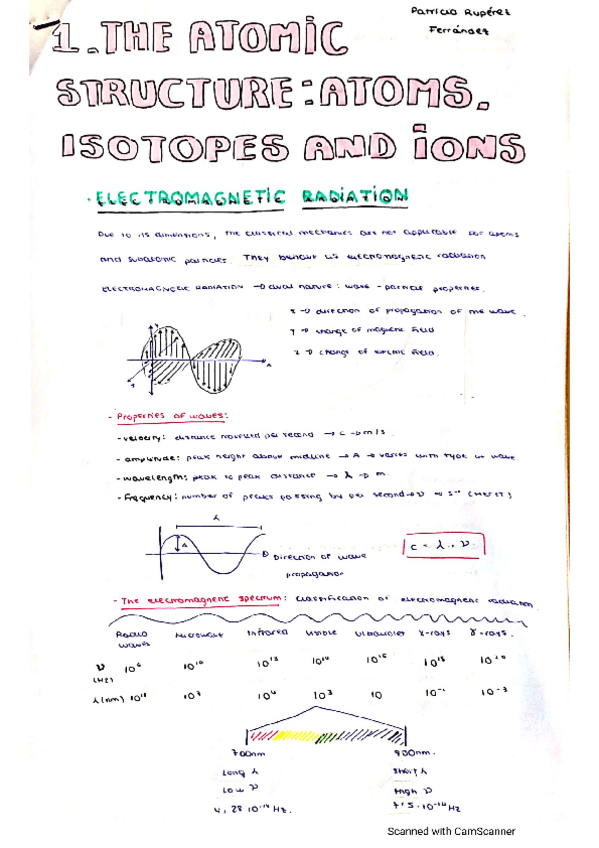 Patricia Rupérez
Fernández
1. THE ATOMIC
STRUCTURE: ATOMS.
ISOTOPES AND IONS
· ELECTROMAGNETIC RADIATION
Due to its dimensions, the classical mechanics are not applicable for atoms
and subatomic particles. They behave as electromagnetic radiation
ELECTROMAGNETIC RADIATION → dual nature: wave - particle properties.
x → direction of propagation of the wave.
Y → change of magnetic field
z → change of electric field.
- Properties of waves:
- velocity: distance travelled per second → c → m/s.
- amplitude: peak height above midline → A → varies with type of wave
- wavelength: peak to peak distance → λ → m.
- Frequency: number of peaks passing by per second → ν → s⁻¹ (Hertz)
λ
A
Direction of wave
propagation
c = λ . ν
- The electromagnetic spectrum: classification of electromagnetic radiation.
Radio waves Microwave Infrared Visible Ultraviolet X-rays γ-rays.
ν (Hz) 10⁶ 10¹⁰ 10¹³ 10¹⁴ 10¹⁶ 10¹⁸
λ (nm) 10⁴ 10³ 10 10⁻¹ 10⁻³
700nm
Long λ Short λ
Low ν High ν
4,28 10⁻¹⁴ Hz. 7'5 · 10⁻¹⁴ Hz
Scanned with CamScanner